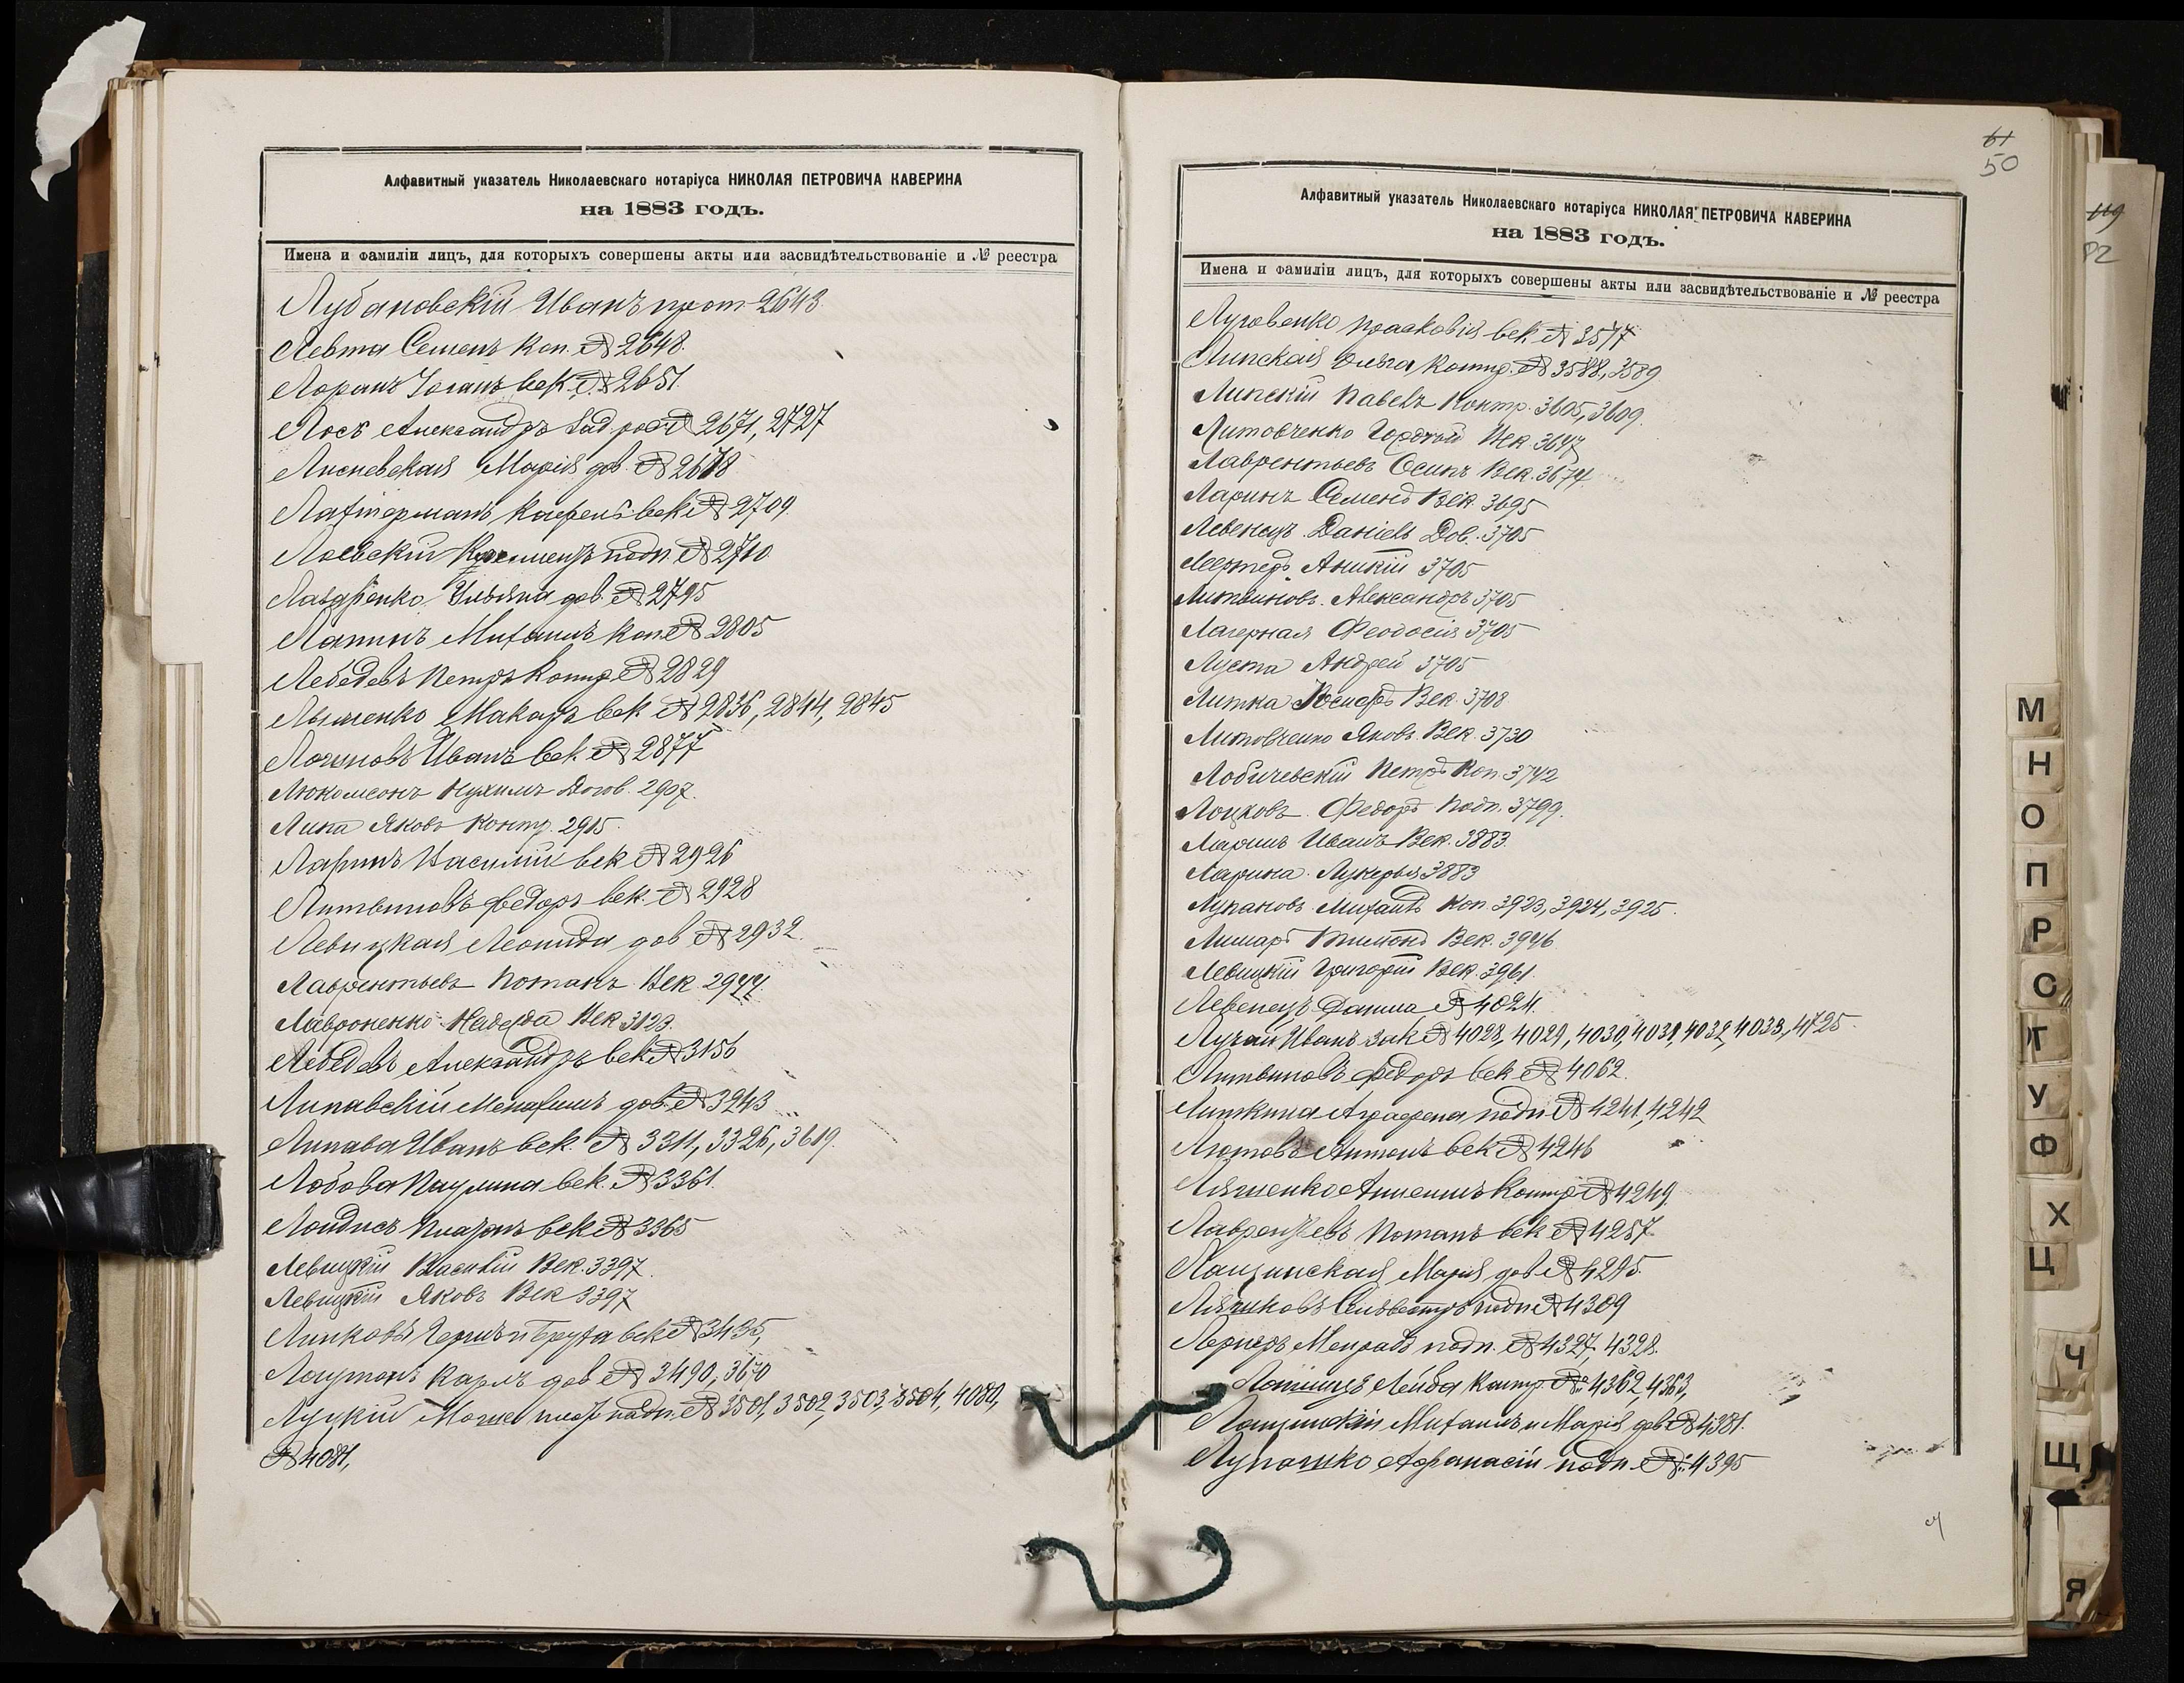 Алфавитный указатель Николаевскаго нотаріуса НИКОЛАЯ ПЕТРОВИЧА КАВЕРИНА
на 1883 годъ.
Имена и фамиліи лицъ, для которыхъ совершены акты или засвидѣтельствованіе и № реестра
Лубановскій Иванъ прот 2643
Левта Семенъ коп. № 2648.
Лоранъ Іоганъ век. № 2651
Лосъ Александръ 2671, 2727
Лисневская Марія дов. №
век № 2709
Лоевскій подп. № 2710
Лазаренко Ульяна дов. № 2795
Лапинъ Михаилъ коп № 2805
Лебедевъ Петръ контр № 2829
Макаръ век № 2836, 2844, 2845
Логиновъ Иванъ век № 2877
Нухимъ Догов. 2907.
Липа Яковъ контр. 2915.
Ларинъ Василій век № 2926
Литвиновъ Федоръ век. № 2928
Левицкая Леонида дов № 2932.
Лаврентьевъ Потапъ Век 2944.
Лавроненко Надежда Век 3123.
Лебедевъ Александръ век № 3156
Липавскій дов. № 3243
Липава Иванъ век. № 3311, 3326, 3619.
Лобова Паулина век. № 3361.
Платонъ век № 3365
Левицкій Василій Век. 3397.
Левицкій Яковъ Век 3397
Липковы Гершъ и Бруха век № 3435,
Карлъ дов № 3490, 3670
Луцкій Мошко подп. № 3501, 3502, 3503, 3504, 4080,
№ 4081,
61
50
Алфавитный указатель Николаевскаго нотаріуса НИКОЛАЯ ПЕТРОВИЧА КАВЕРИНА
на 1883 годъ.
Имена и фамиліи лицъ, для которыхъ совершены акты или засвидѣтельствованіе и № реестра
Луговенко Прасковія век № 3577
Липская Ольга контр. № 3588, 3589
Липскій Павелъ контр. 3605, 3609.
Литовченко Гордѣй Век. 3647
Лаврентьевъ Осипъ Век. 3674.
Ларинъ Семенъ Век. 3695
Левенецъ Даніелъ Дов. 3705
3705
Литвиновъ Александръ 3705
Лагерная Феодосія 3705
Луста Андрей 3705
Литка Іосифъ Век. 3708
Литовченко Яковъ Век. 3730
Лобичевскій Петръ Коп. 3742
Лоцковъ Федоръ Подп. 3799.
Ларинъ Иванъ Век. 3883.
Ларина Лукерья 3883
Лукановъ Михаилъ Коп. 3923, 3924, 3925.
Век. 3946
Левицкій Григорій Век. 3961.
Левенецъ Данила № 4024.
Лугай Иванъ зак № 4028, 4029, 4030, 4031, 4032, 4033, 4725.
Литвиновъ Федоръ век № 4062.
Липкина Аграфена подп № 4241, 4242
Лютовъ Антонъ век № 4246
Ляшенко контр № 4249.
Лаврентьевъ Потапъ век № 4257.
Лащинская Марія дов № 4295.
Сильвестръ подп № 4309
Лернеръ подп. № 4327, 4328.
Лейба контр. № 4362, 4363,
Михаилъ и Марія дов № 4381.
Лупашко Афанасій подп. № 4395
119
82
М
Н
О
П
Р
С
Т
У
Ф
Х
Ц
Ч
Щ
Я